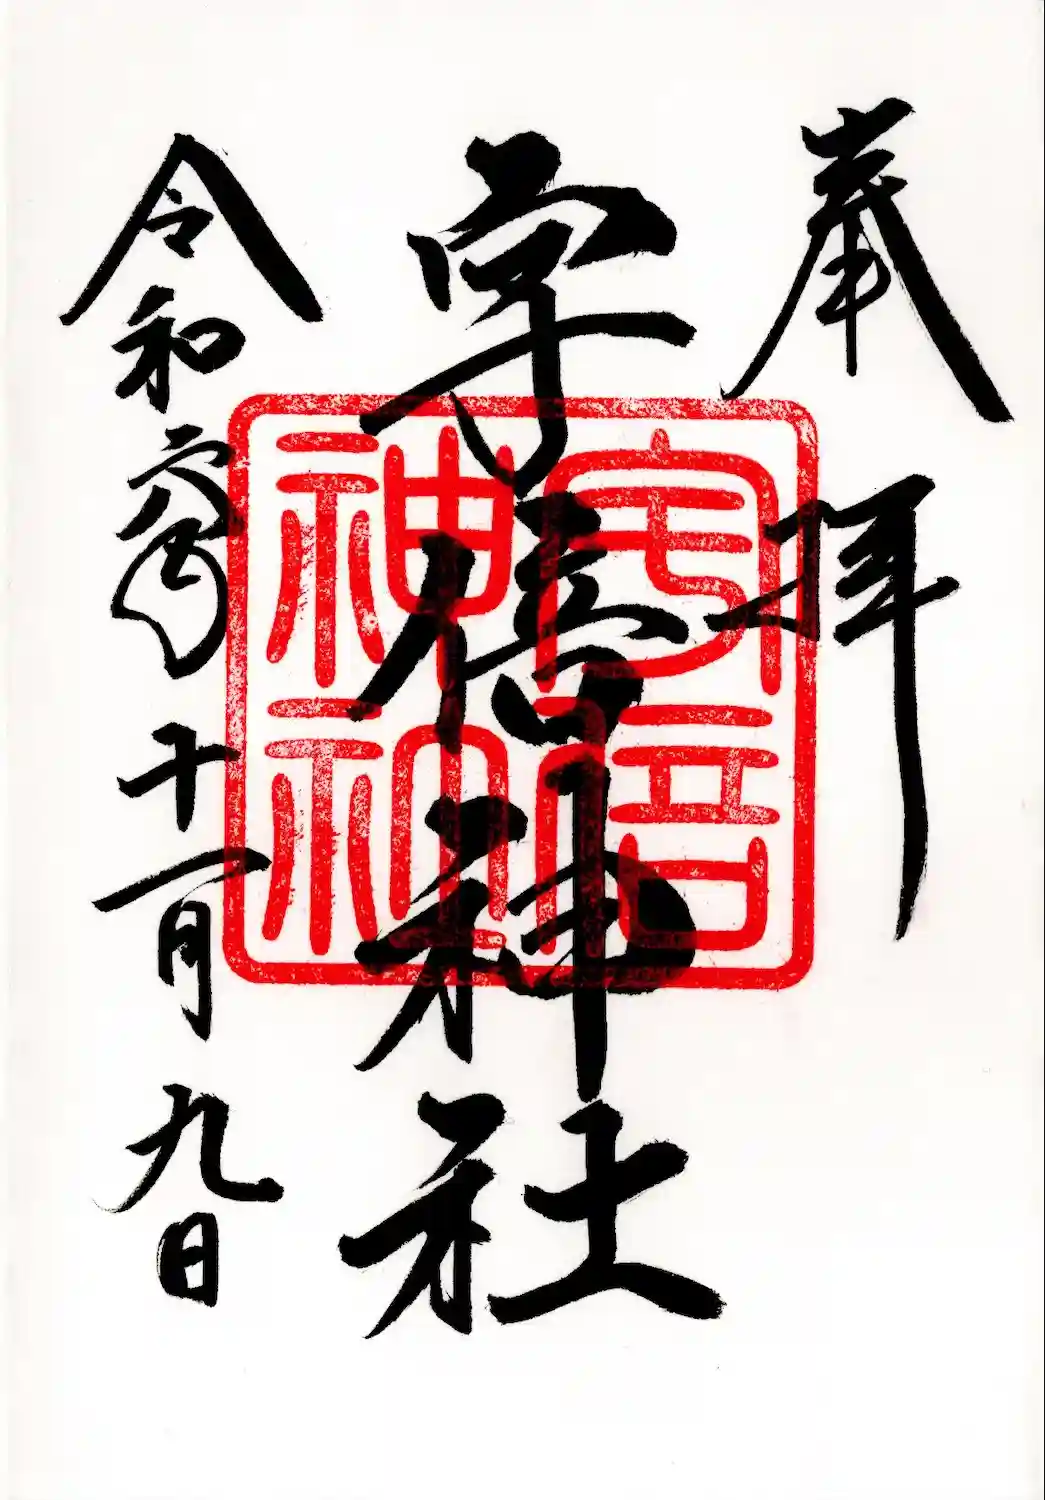 奉拝
宇倍神社
令和六年十一月九日
宇倍
神